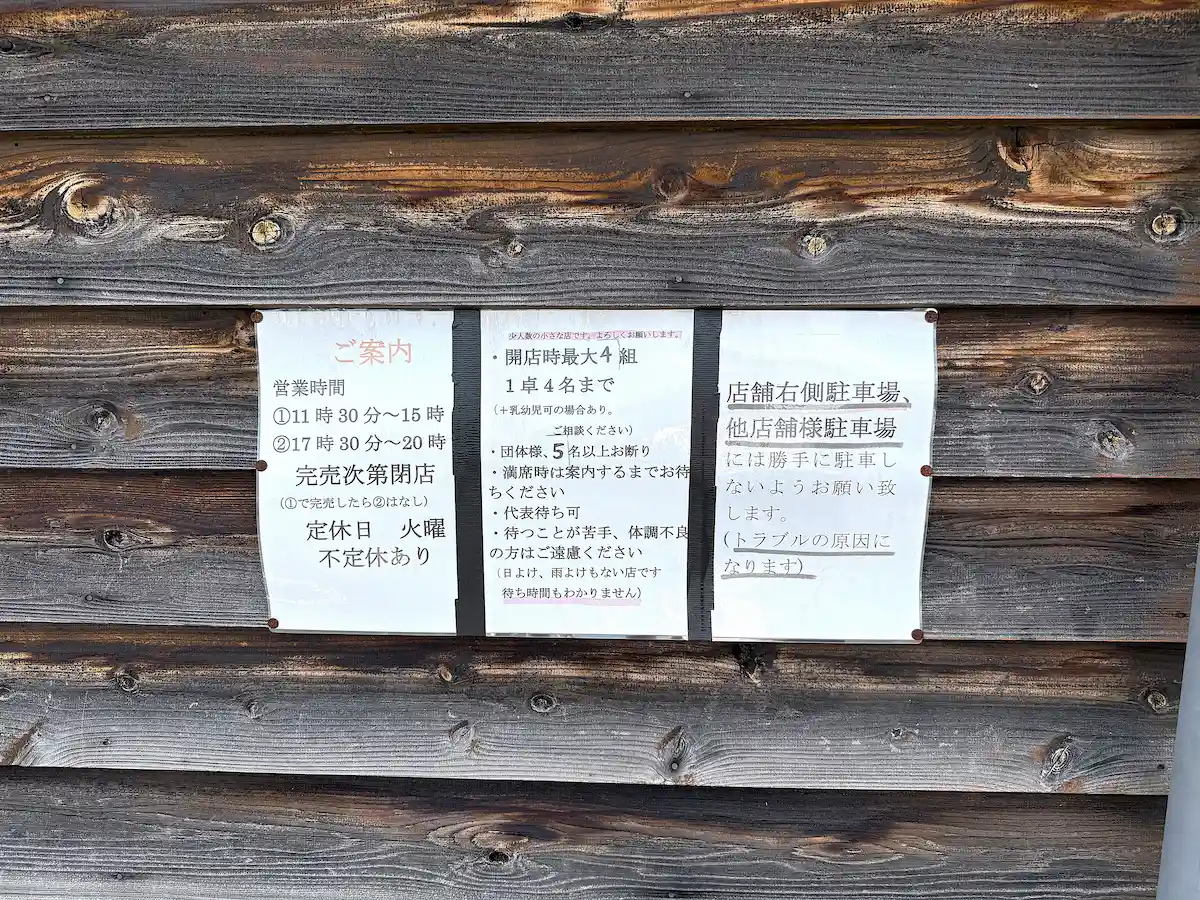 ご案内
営業時間
①11時30分～15時
②17時30分～20時
完売次第閉店
(①で完売したら②はなし)
定休日　火曜
不定休あり
少人数の小さな店です。よろしくお願いします。
・開店時最大4組
1卓4名まで
(＋乳幼児可の場合あり。
ご相談ください)
・団体様、5名以上お断り
・満席時は案内するまでお待
ちください
・代表待ち可
・待つことが苦手、体調不良
の方はご遠慮ください
(日よけ、雨よけもない店です
待ち時間もわかりません)
店舗右側駐車場、
他店舗様駐車場
には勝手に駐車し
ないようお願い致
します。
(トラブルの原因に
なります)